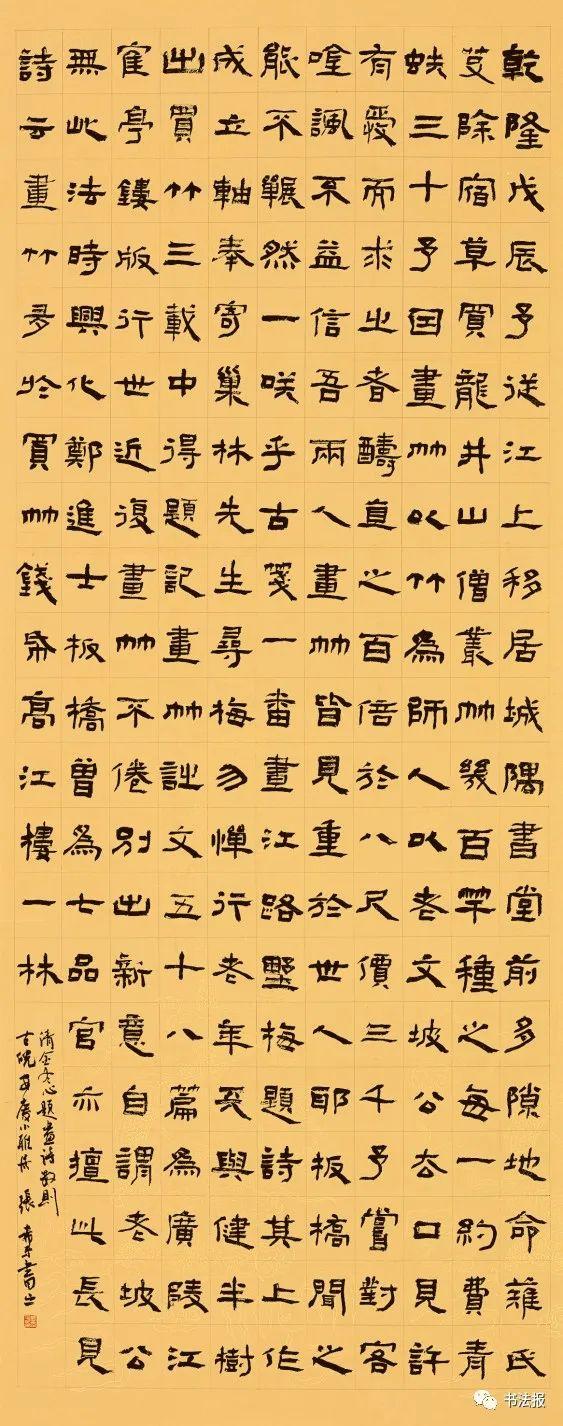 乾隆戊辰予從江上移居城隅書堂前多隙地命薙氏
芟除宿草買龍井山僧叢竹幾百竿種之每一約費青
蚨三十予因畫竹以竹為師人以老文坡公去口見許
有愛而求之者醻直之百倍於八尺價三千予嘗對客
唯諷不益信吾兩人畫竹皆見重於世人耶板橋聞之
能不囅然一咲乎古箋一番畫江路野梅題詩其上作
成立軸奉寄巢林先生尋梅勿憚行老年天與健半樹
出買竹三載中得題記畫竹詩文五十八篇為廣陵江
隺亭鏤版行世近復畫竹不倦別出新意自謂老坡公
無此法時興化鄭進士板橋曾為七品官亦擅此長見
詩云畫竹多於買竹錢帋高江樓一林
清金冬心題畫詩數則
小雅居 張 書
书法报